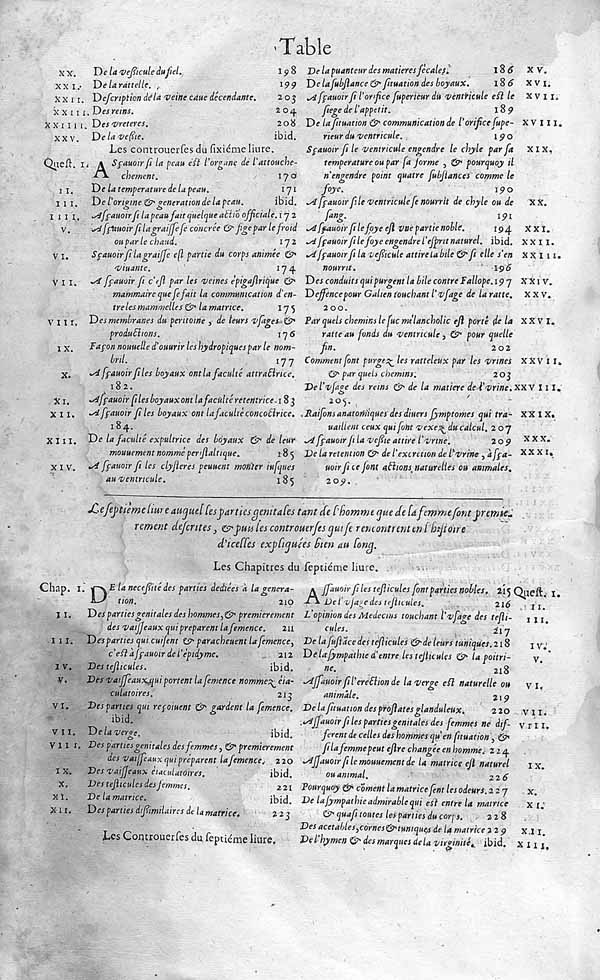 Table
XX. De la vesicule du fiel. 198
XXI. De la rattelle. 199
XXII. Description de la veine caue décendante. 203
XXIII. Des reins. 204
XXIIII. Des vreteres. 208
XXV. De la vessie. ibid.
Les controuerses du sixiéme liure.
Quest. I. ASçauoir si la peau est l'organe de l'attouche-
chement. 170
II. De la temperature de la peau. 171
III. De l'origine & generation de la peau. ibid.
IIII. Asçauoir si la peau fait quelque actiõ officiale. 172
V. Asçauoir si la graisse se concrée & fige par le froid
ou par le chaud. 172
VI. Sçauoir si la graisse est partie du corps animée &
viuante. 174
VII. Asçauoir si c'est par les veines épigastrique &
mammaire que se fait la communication d'en-
tre les mammelles & la matrice. 175
VIII. Des membranes du peritoine, de leurs vsages &
productions. 176
IX. Façon nouuelle d'ouurir les hydropiques par le nom-
bril. 177
X. Asçauoir si les boyaux ont la faculté attractrice.
182.
XI. Asçauoir si les boyaux ont la faculté retentrice. 183
XII. Asçauoir si les boyaux ont la faculté concoctrice.
184.
XIII. De la faculté expultrice des boyaux & de leur
mouuement nommé peristaltique. 185
XIV. Asçauoir si les clysteres peuuent monter iusques
au ventricule. 185
De la puanteur des matieres fécales. 186 XV.
De la substance & situation des boyaux. 186 XVI.
Asçauoir si l'orifice superieur du ventricule est le XVII.
siege de l'appetit. 189
De la situation & communication de l'orifice supe- XVIII.
rieur du ventricule. 190
Sçauoir si le ventricule engendre le chyle par sa XIX.
temperature ou par sa forme, & pourquoy il
n'engendre point quatre substances comme le
foye. 190
Asçauoir si le ventricule se nourrit de chyle ou de XX.
sang. 191
Asçauoir si le foye est vne partie noble. 194 XXI.
Asçauoir si le foye engendre l'esprit naturel. ibid. XXII.
Asçauoir si la vesicule attire la bile & si elle s'en XXIII.
nourrit. 196
Des conduits qui purgent la bile contre Fallope. 197 XXIV.
Deffence pour Galien touchant l'vsage de la ratte. XXV.
200.
Par quels chemins le suc mélancholic est porté de la XXVI.
ratte au fonds du ventricule, & pour quelle
fin. 202
Comment sont purgez les ratteleux par les vrines XXVII.
& par quels chemins. 203
De l'vsage des reins & de la matiere de l'vrine. XXVIII.
205.
Raisons anatomiques des diuers symptomes qui tra- XXIX.
uaillent ceux qui sont vexez du calcul. 207
Asçauoir si la vessie attire l'vrine. 209 XXX.
De la retention & de l'excretion de l'vrine, à sça- XXXI.
uoir si ce sont actions naturelles ou animales.
209.
Le septiéme liure auquel les parties genitales tant de l'homme que de la femme sont premie-
rement descrites, & puis les controuerses qui se rencontrent en l'histoire
d'icelles expliquées bien au long.
Les Chapitres du septiéme liure.
Chap. I. DE la necessité des parties dediées à la genera-
tion. 210
II. Des parties genitales des hommes, & premierement
des vaisseaux qui preparent la semence. 211
III. Des parties qui cuisent & paracheuent la semence,
c'est à sçauoir de l'épidyme. 212
IV. Des testicules. ibid.
V. Des vaisseaux qui portent la semence nommez éia-
culatoires. 213
VI. Des parties qui reçoiuent & gardent la semence.
ibid.
VII. De la verge. ibid.
VIII. Des parties genitales des femmes, & premierement
des vaisseaux qui préparent la semence. 220
IX. Des vaisseaux éiaculatoires. ibid.
X. Des testicules des femmes. 221
XI. De la matrice. ibid.
XII. Des parties dissimilaires de la matrice. 223
Les Controuerses du septiéme liure.
ASsauoir si les testicules sont parties nobles. 215 Quest. I.
De l'vsage des testicules. 216 II.
L'opinion des Medecins touchant l'vsage des testi- III.
cules. 217
De la sustãce des testicules & de leurs tuniques. 218 IV.
De la sympathie d'entre les testicules & la poitri- V.
ne. 218
Assauoir si l'erection de la verge est naturelle ou VI.
animale. 219
De la situation des prostates glanduleux. 220 VII.
Assauoir si les parties genitales des femmes ne dif- VIII.
ferent de celles des hommes qu'en situation, &
si la femme peut estre changée en homme. 224
Assauoir si le mouuement de la matrice est naturel IX.
ou animal. 226
Pourquoy & cõment la matrice sent les odeurs. 227 X.
De la sympathie admirable qui est entre la matrice XI.
& quasi toutes les parties du corps. 228
Des acetables, cornes & tuniques de la matrice 229 XII.
De l'hymen & des marques de la virginité. ibid. XIII.